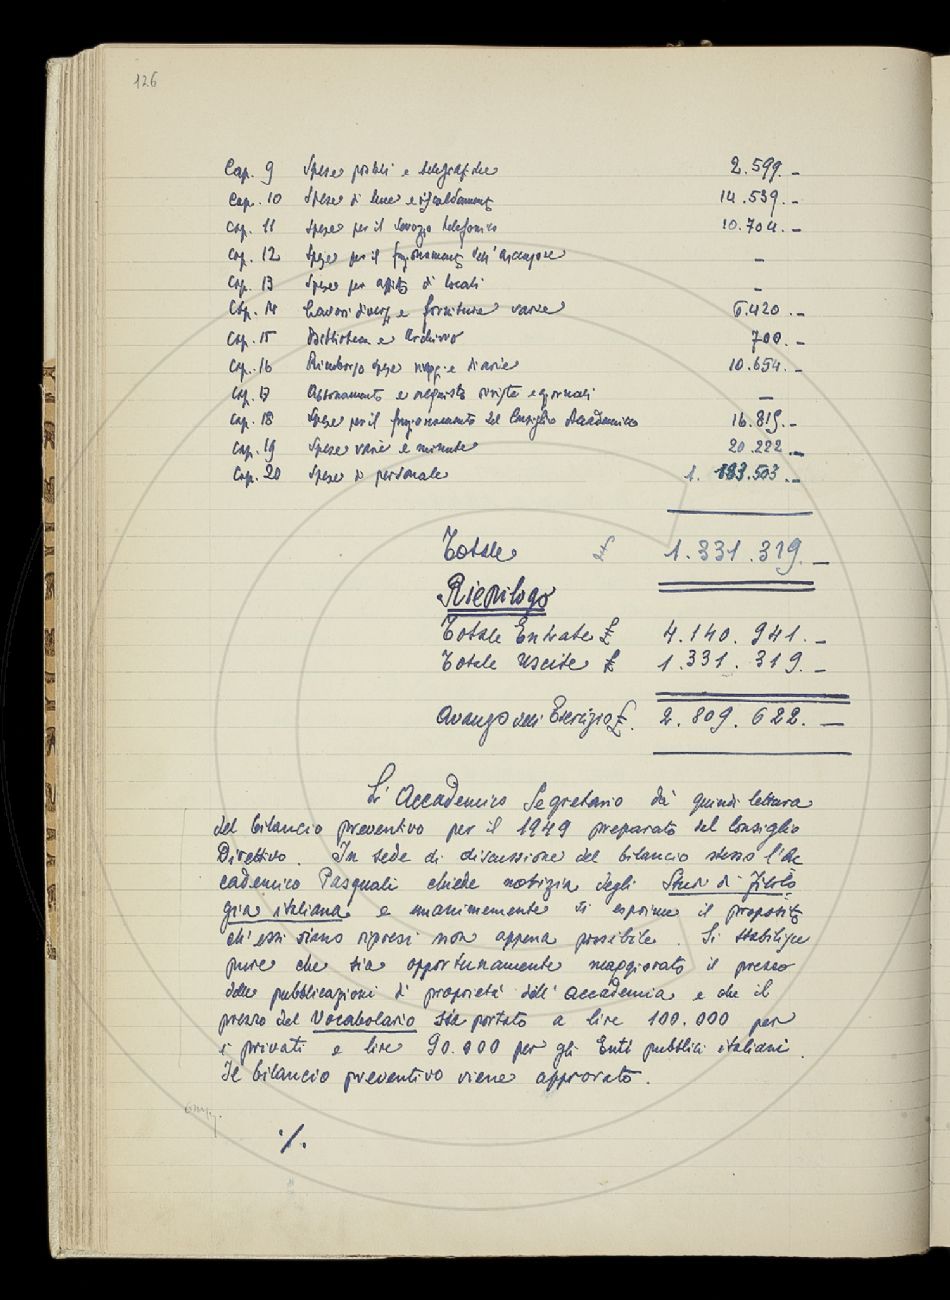 126
Cap. 9 Spese postali e telegrafiche 2.599.-
Cap. 10 Spese di luce e riscaldamento 14.539.-
Cap. 11 Spese per il servizio telefonico 10.704.-
Cap. 12 Spese per il funzionamento dell'ascensore -
Cap. 13 Spese per affitto di locali -
Cap. 14 Lavori diversi e forniture varie 6.420.-
Cap. 15 Biblioteca e Archivio 700.-
Cap. 16 Rimborso spese viaggi e diarie 10.654.-
Cap. 17 Abbonamento e acquisto riviste e giornali -
Cap. 18 Spese per il funzionamento del Consiglio Accademico 16.819.-
Cap. 19 Spese varie e minute 20.222.-
Cap. 20 Spese di personale 1.193.503.-
Totale 1.331.319.-
Riepilogo
Totale Entrate £ 4.140.941.-
Totale Uscite £ 1.331.319.-
Avanzo dell'Esercizio £. 2.809.622.-
L'Accademico Segretario dà quindi lettura
del bilancio preventivo per il 1949 preparato dal Consiglio
Direttivo. In sede di discussione del bilancio stesso l'Ac
cademico Pasquali chiede notizia degli Studi di Filolo
gia italiana e unanimemente si esprime il proposito
ch'essi siano ripresi non appena possibile. Si stabilisce
pure che sia opportunamente maggiorato il prezzo
delle pubblicazioni di proprietà dell'Accademia e che il
prezzo del Vocabolario sia portato a lire 100.000 per
i privati e lire 90.000 per gli Enti pubblici italiani.
Il bilancio preventivo viene approvato.
./.